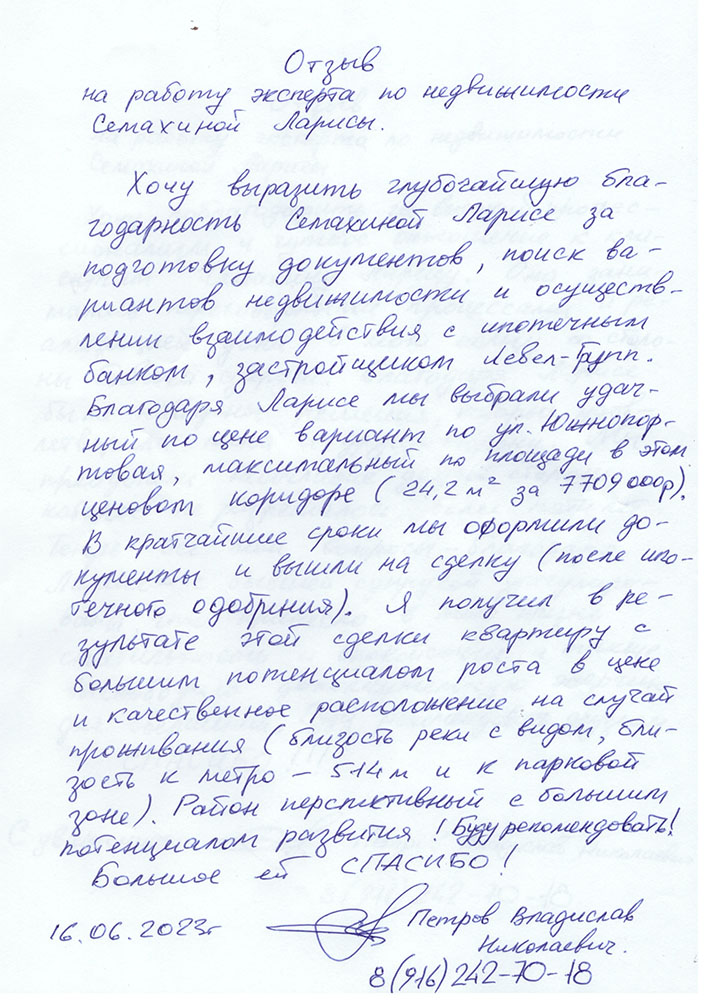 Отзыв
на работу эксперта по недвижимости
Семахиной Ларисы.
Хочу выразить глубочайшую бла-
годарность Семахиной Ларисе за
подготовку документов, поиск ва-
риантов недвижимости и осуществ-
лении взаимодействия с ипотечным
банком, застройщиком Левел-Групп.
Благодаря Ларисе мы выбрали удач-
ный по цене вариант по ул. Южнопор-
товая, максимальный по площади в этом
ценовом коридоре (24,2 м² за 7709000р).
В кратчайшие сроки мы оформили до-
кументы и вышли на сделку (после ипо-
течного одобриния). Я получил в ре-
зультате этой сделки квартиру с
большим потенциалом роста в цене
и качественное расположение на случай
проживания (близость реки с видом, бли-
зость к метро – 514 м и к парковой
зоне). Район перспктивный с большим
потенциалом развития! Буду рекомендовать!
Большое ей СПАСИБО!
16.06.2023г Петров Владислав
Николаевич.
8(916)242-70-18